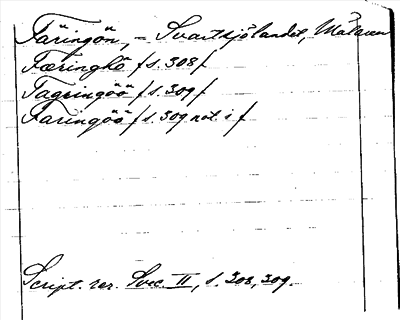 Färingön, = Svartsjölandet, Mälaren
Færinghö /s. 308/
Tagringöö /s. 309/
Faringöö /s. 309 not. i/
Script. rer. Svec. II, s. 308, 309.